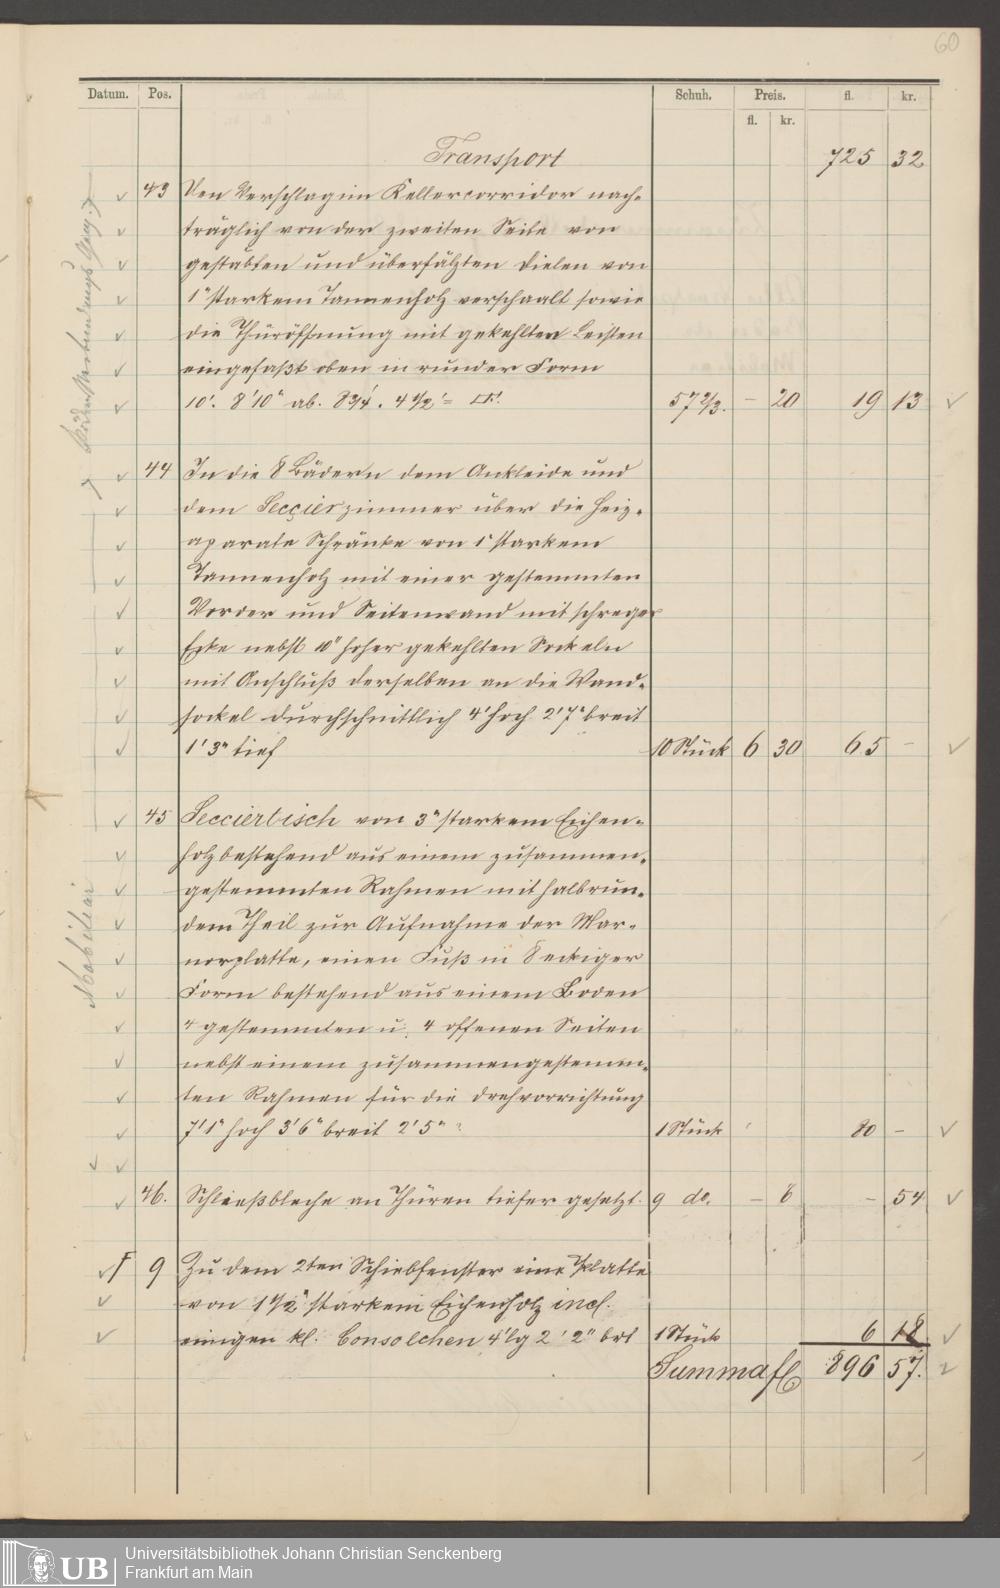 60
Datum. Pos. Schuh. Preis. fl. kr.
fl. kr.
Transport 725 32
43 Den Verschlag im Kellercorridor nach-
träglich von der zweiten Seite von
gestäbten und überfälzten Dielen von
1" starkem Tannenholz verschaalt sowie
die Thüröffnung mit gekehlten Leisten
eingefaßt oben in runder Form
10'. 8'10" ab. 8 3/4'. 4 1/2' = □'. 57 2/3. – 20 19 13
44 In die 8 Bädern dem Ankleide und
dem Secçierzimmer über die Heiz-
aparate Schränke von 1" starkem
Tannenholz mit einer gestemmten
Vorder und Seitenwand mit schreger
Ecke nebst 10" hoher gekehlten Sockeln
mit Anschluß derselben an die Wand-
sockel durchschnittlich 4' hoch 2'7" breit
1'3" tief 10 Stück 6 30 65 –
45 Secciertisch von 3" starkem Eichen-
holz bestehend aus einem zusammen-
gestemmten Rahmen mit halbrun-
dem Theil zur Aufnahme der Mar-
morplatte, einen Fuß in 8 eckiger
Form bestehend aus einem Boden
4 gestemmten u. 4 offenen Seiten
nebst einem zusammengestemm-
ten Rahmen für die drehvorrichtung
7'1" hoch 3'6" breit 2'5" 1 Stück 80 –
46. Schließbleche an Thüren tiefer gesetzt. 9 do. – 6 – 54
9 Zu dem 2ten Schiebfenster eine Platte
von 1 1/2" starkem Eichenholz incl.
einigen kl. Consolchen 4' lg 2'2" brt 1 Stück 6 18
Summa fl 896 57.
Mobiliar
UB
Universitätsbibliothek Johann Christian Senckenberg
Frankfurt am Main